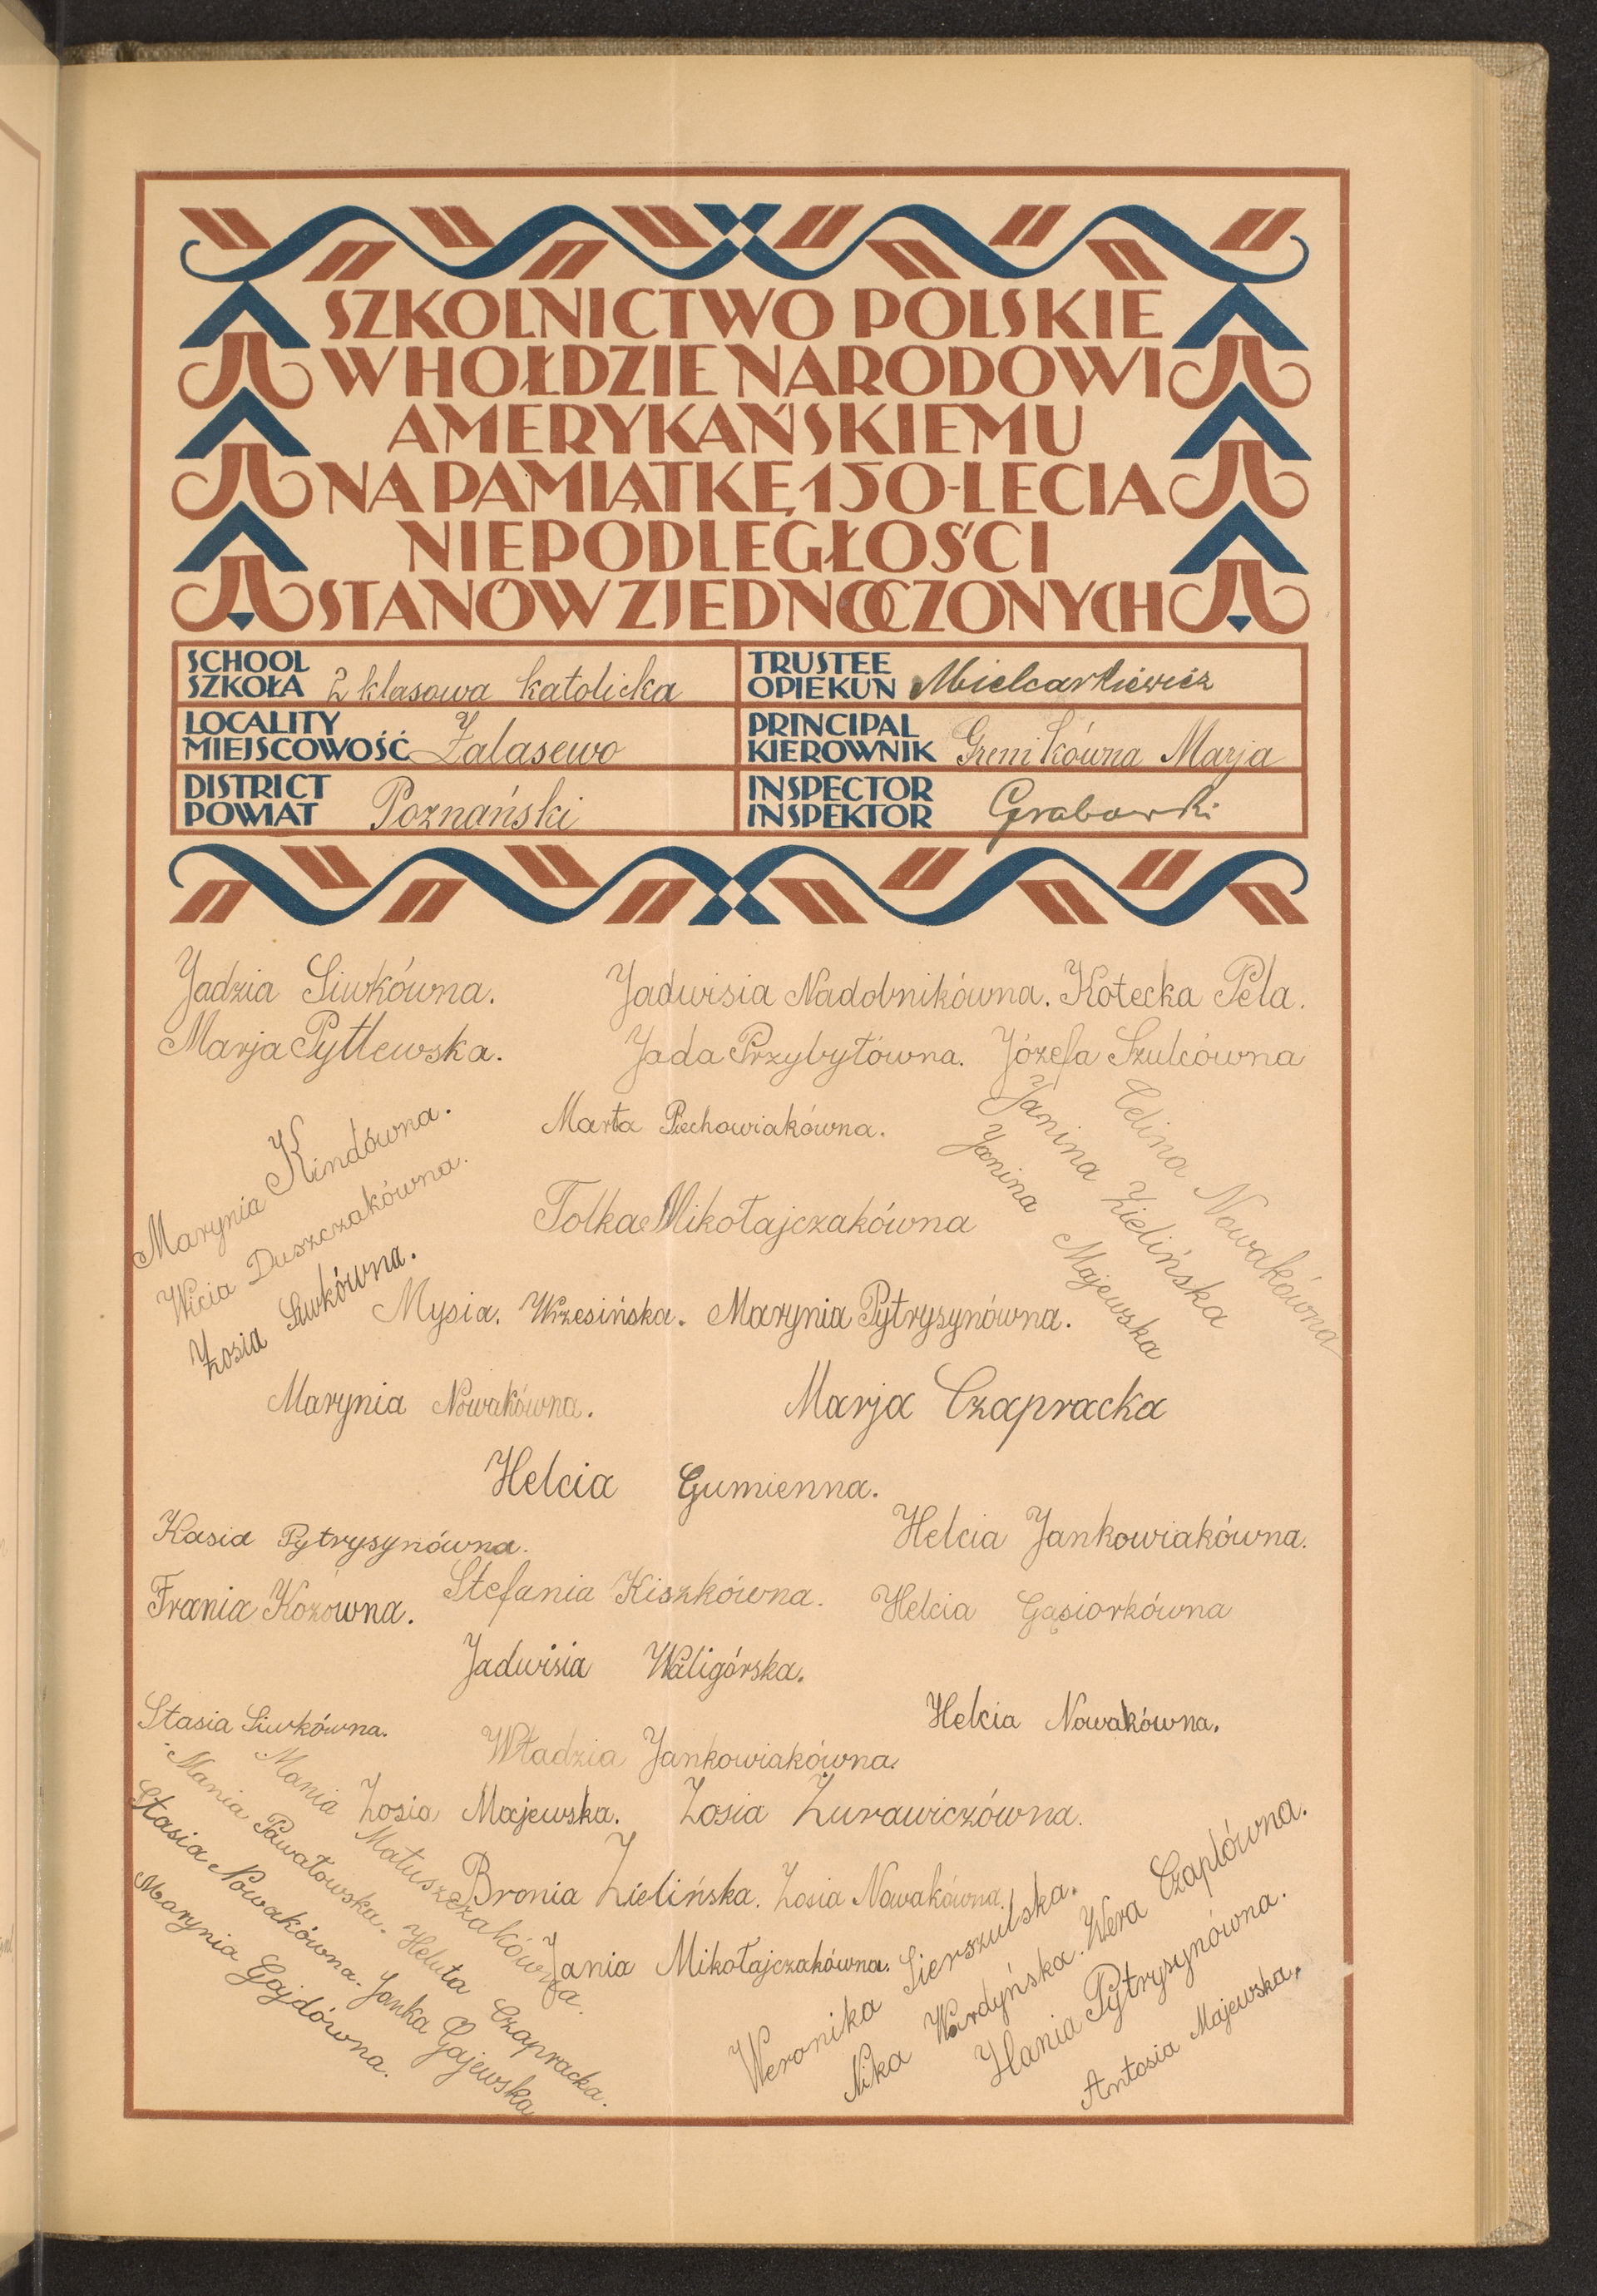 SZKOLNICTWO POLSKIE
W HOŁDZIE NARODOWI
AMERYKAŃSKIEMU
NA PAMIĄTKĘ 150-LECIA
NIEPODLEGŁOŚCI
STANÓW ZJEDNOCZONYCH
SCHOOL
SZKOŁA 2 klasowa katolicka
TRUSTEE
OPIEKUN Mielcarkiewicz
LOCALITY
MIEJSCOWOŚĆ Zalasewo
PRINCIPAL
KIEROWNIK Grenikówna Marja
DISTRICT
POWIAT Poznański
INSPECTOR
INSPEKTOR Grabowski
Jadzia Siwkówna. Jadwisia Nadobnikówna. Kotecka Pela.
Marja Pytlewska. Jada Przybytówna. Józefa Szulcówna
Marta Piechowiakówna.
Marynia Kindówna.
Wicia Duszczakówna.
Zosia Siwkówna.
Celina Nowakówna
Janina Zielińska
Janina Majewska
Tolka Mikołajczakówna
Mysia. Wrzesińska. Marynia Pytrysynówna.
Marynia Nowakówna. Marja Czapracka
Helcia Gumienna.
Kasia Pytrysynówna. Helcia Jankowiakówna.
Frania Kozówna. Stefania Kiszkówna. Helcia Gąsiorkówna
Jadwisia Waligórska.
Stasia Siwkówna. Helcia Nowakówna.
Władzia Jankowiakówna.
Zosia Majewska. Zosia Żurawiczówna.
Bronia Zielińska. Zosia Nowakówna.
Jania Mikołajczakówna.
Mania Matuszczakówna.
Mania Pawałowska. Heluta Czapracka.
Stasia Nowakówna. Janka Gajewska
Marynia Gajdówna.
Weronika Sierszulska.
Nika Wardyńska. Wera Czaplówna.
Hania Pytrysynówna.
Antosia Majewska.